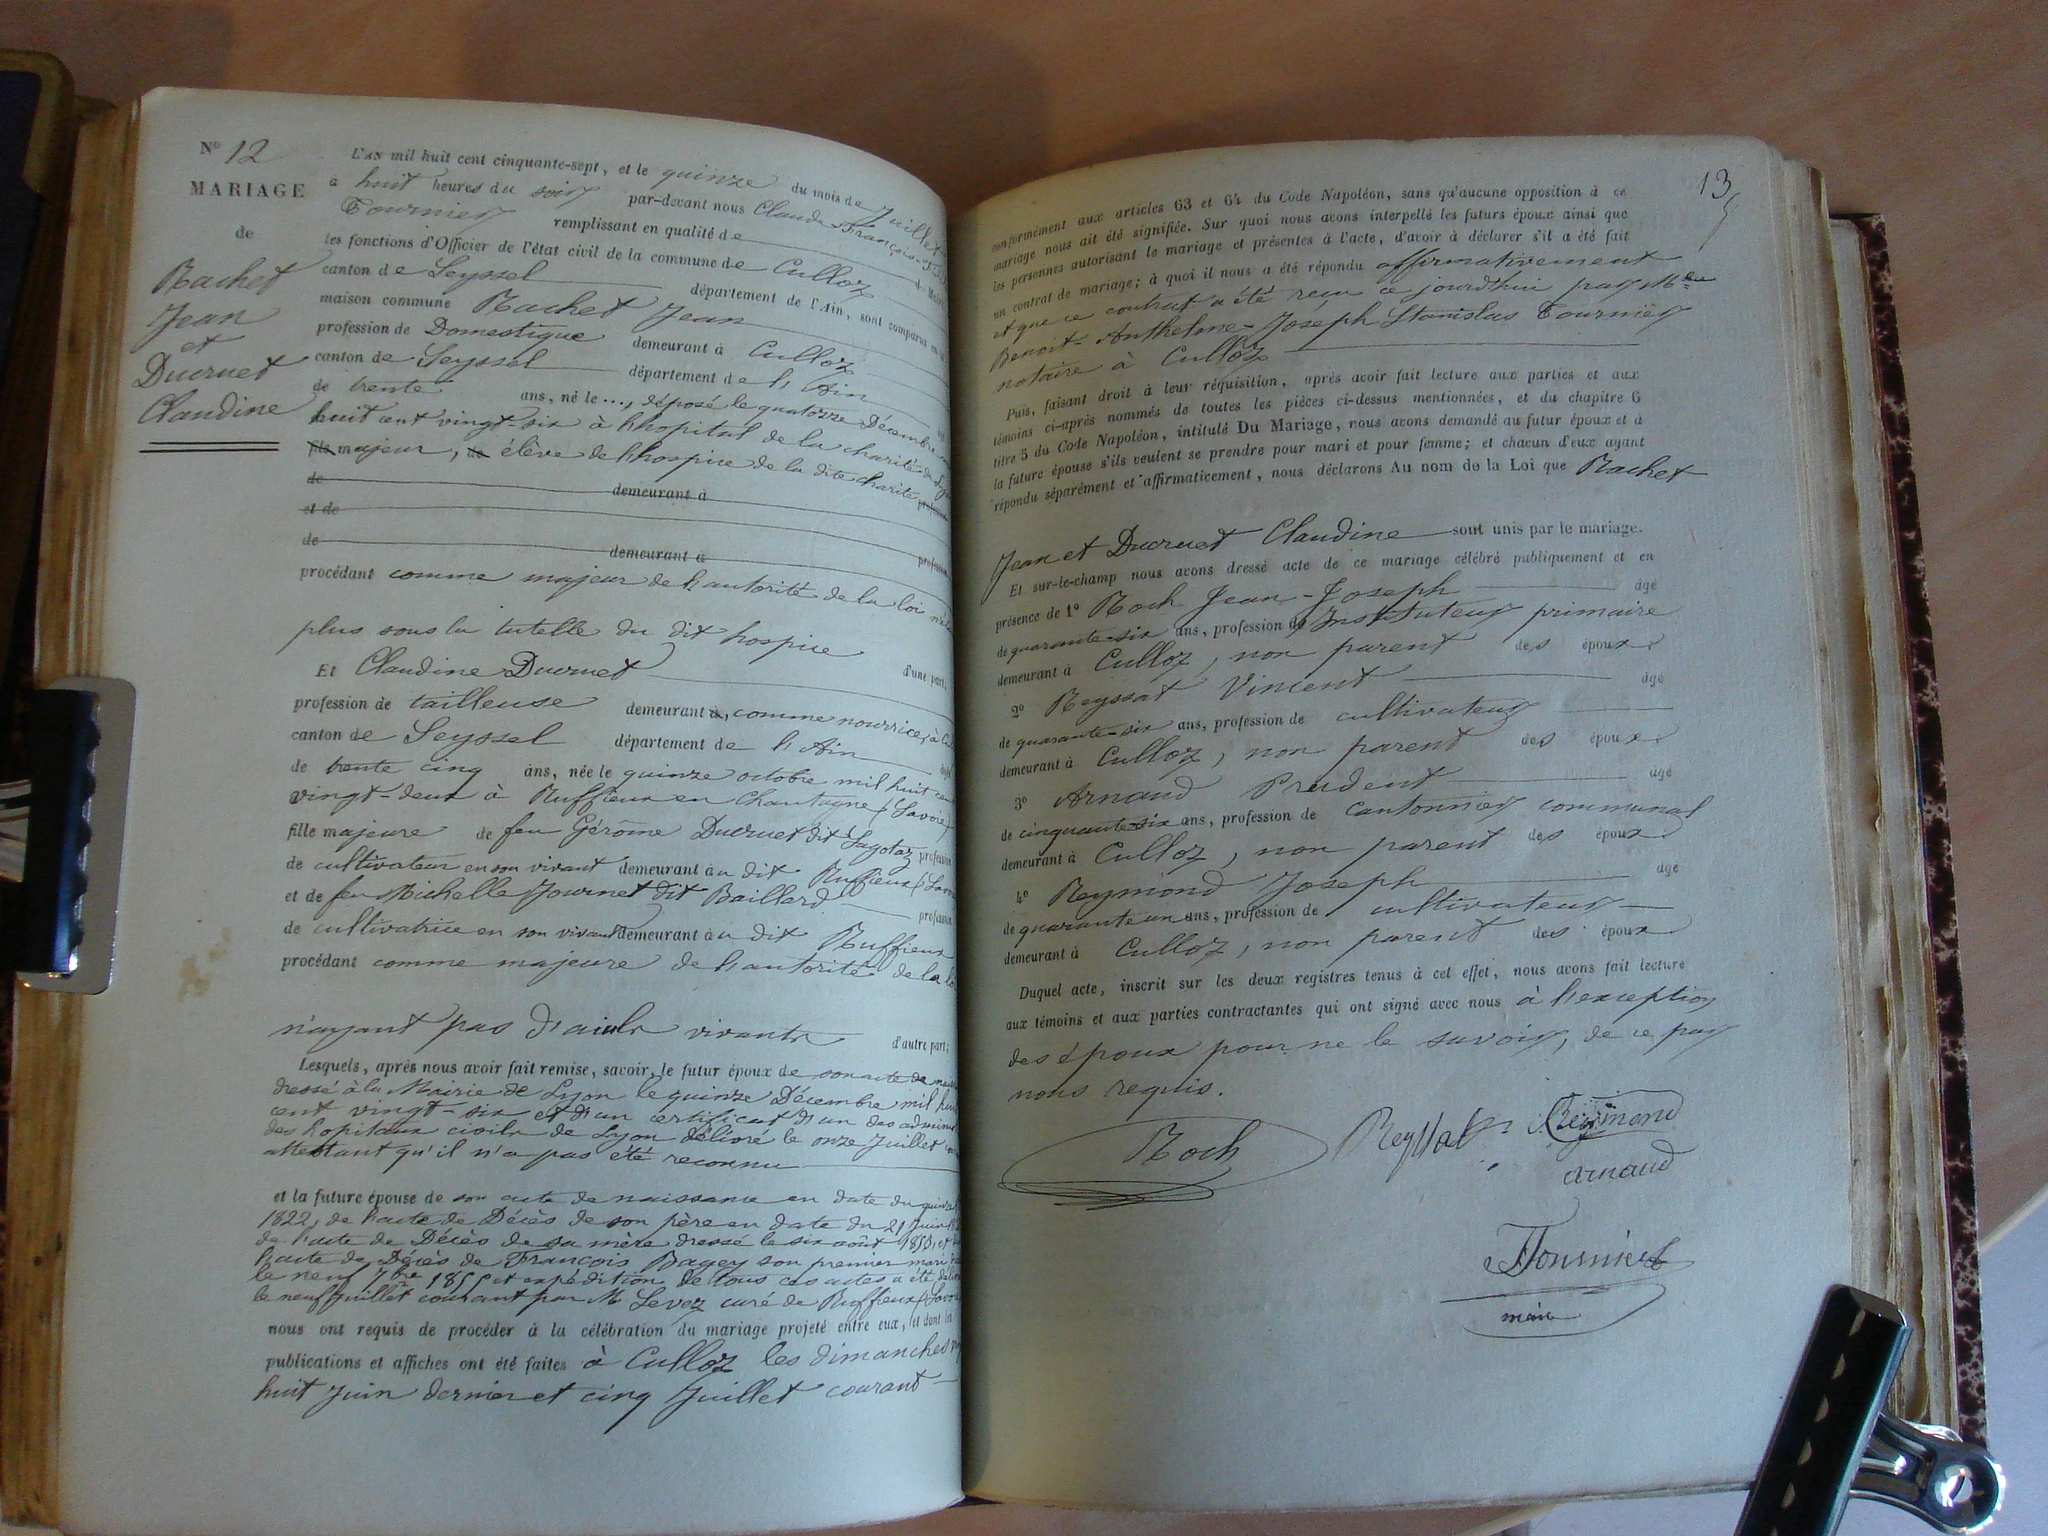 N° 12
MARIAGE
de
Rachet
Jean
et
Ducruet
Claudine
L'AN mil huit cent cinquante-sept, et le quinze du mois de Juillet
à huit heures du soir par-devant nous Claude François
Tournier remplissant en qualité de
les fonctions d'Officier de l'état civil de la commune de Culloz
canton de Seyssel département de l'Ain, sont comparus en la
maison commune Rachet Jean
profession de Domestique demeurant à Culloz
canton de Seyssel département de l'Ain
de trente ans, né le ..., déposé le quatorze Décembre
huit cent vingt-six à l'hopital de la charité de Lyon
fils majeur, de élève de l'hospice de la dite charité profession
de demeurant à
et de
de demeurant à profession
procédant comme majeur de l'autorité de la loi n'étant
plus sous la tutelle du dit hospice
Et Claudine Ducruet d'une part,
profession de tailleuse demeurant à, comme nourrice, à
canton de Seyssel département de l'Ain âgée
de trente cinq ans, née le quinze octobre mil huit cent
vingt-deux à Ruffieux en Chautagne (Savoie)
fille majeure de feu Gérôme Ducruet dit Sagotaz profession
de cultivateur en son vivant demeurant au dit Ruffieux (Savoie
et de feu Michelle Journet dit Baillard profession
de cultivatrice en son vivant demeurant au dit Ruffieux
procédant comme majeure de l'autorité de la loi
n'ayant pas d'aiuls vivants d'autre part;
Lesquels, après nous avoir fait remise, savoir, le futur époux de son acte de
dressé à la Mairie de Lyon le quinze Décembre mil huit
cent vingt-six et d'un certificat d'un des
des hopitaux civils de Lyon délivré le onze Juillet
attestant qu'il n'a pas été reconnu
et la future épouse de son acte de naissance en date du quinze
1822, de l'acte de Décès de son père en date du 21 Juin
de l'acte de Décès de sa mère dressé le six août
l'acte de Décès de François Bagey son premier mari
le neuf 7bre 1855 et expédition de tous ces actes a été
le neuf Juillet courant par M Levez curé de Ruffieux (Savoie
nous ont requis de procéder à la célébration du mariage projeté entre eux, et dont les
publications et affiches ont été faites à Culloz les dimanches
huit Juin dernier et cinq Juillet courant
13
conformément aux articles 63 et 64 du Code Napoléon, sans qu'aucune opposition à ce
mariage nous ait été signifiée. Sur quoi nous avons interpellé les futurs époux ainsi que
les personnes autorisant le mariage et présentes à l'acte, d'avoir à déclarer s'il a été fait
un contrat de mariage; à quoi il nous a été répondu affirmativement
et que ce contrat a été reçu ce jourd'hui par Mtre
Benoit-Anthelme-Joseph Stanislas Tournier
notaire à Culloz
Puis, faisant droit à leur réquisition, après avoir fait lecture aux parties et aux
témoins ci-après nommés de toutes les pièces ci-dessus mentionnées, et du chapitre 6
titre 5 du Code Napoléon, intitulé Du Mariage, nous avons demandé au futur époux et à
la future épouse s'ils veulent se prendre pour mari et pour femme; et chacun d'eux ayant
répondu séparément et affirmaticement, nous déclarons Au nom de la Loi que Rachet
Jean et Ducruet Claudine sont unis par le mariage.
Et sur-le-champ nous avons dressé acte de ce mariage célébré publiquement et en
présence de 1° Roch Jean-Joseph âgé
de quarante-six ans, profession de Instituteur primaire
demeurant à Culloz, non parent des époux.
2° Reyssat Vincent âgé
de quarante-six ans, profession de cultivateur
demeurant à Culloz, non parent des époux.
3° Arnaud Prudent âgé
de cinquante-six ans, profession de cantonnier communal
demeurant à Culloz, non parent des époux.
4° Reymond Joseph âgé
de quarante un ans, profession de cultivateur
demeurant à Culloz, non parent des époux
Duquel acte, inscrit sur les deux registres tenus à cet effet, nous avons fait lecture
aux témoins et aux parties contractantes qui ont signé avec nous à l'exception
des époux pour ne le savoir, de ce par
nous requis.
Roch Reyssat J. Reymond
arnaud
Tournier
maire